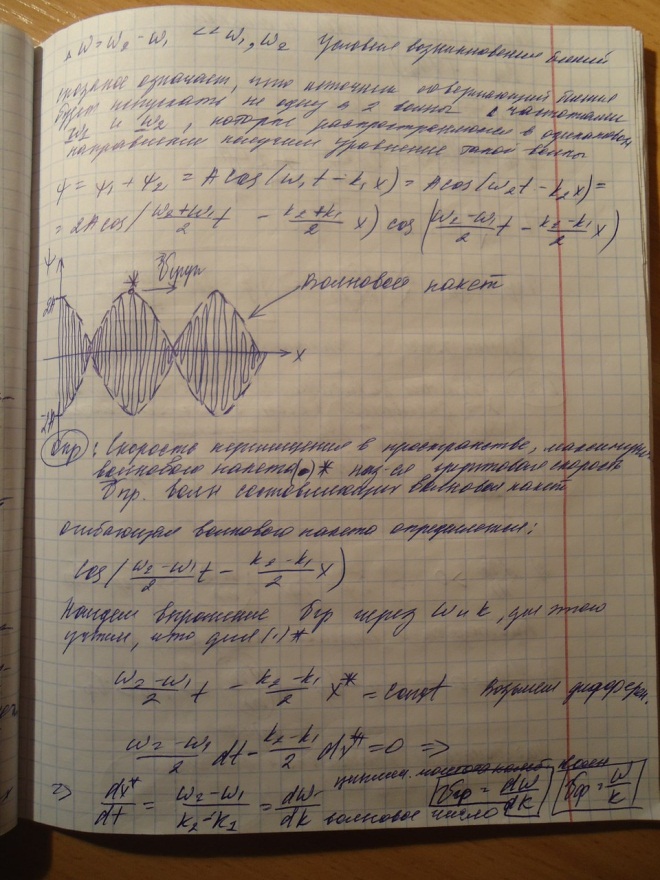 Δω = ω₂ - ω₁ << ω₁, ω₂ Условия возникновения биений
сказаное означает, что источник совершающий биения
будет испускать не одну а 2 волны с частотами
ω₁ и ω₂, которые распространяются в одинаковом
направлении получим уравнение такой волны
ψ = ψ₁ + ψ₂ = A cos(ω₁t - k₁x) = A cos(ω₂t - k₂x) =
= 2A cos((ω₂+ω₁)/2 t - (k₂+k₁)/2 x) cos((ω₂-ω₁)/2 t - (k₂-k₁)/2 x)
ψ
* групп
волновой пакет
2A
x
-2A
Опр: Скорость перемещения в пространстве, максимума
волнового пакета (•)* наз-ся групповая скорость
опр. волн составляющих волновой пакет
огибающая волнового пакета определяется:
cos((ω₂-ω₁)/2 t - (k₂-k₁)/2 x)
Найдем выражение υгр через ω и k, для этого
учтем, что для (•)*
(ω₂-ω₁)/2 t - (k₂-k₁)/2 x* = const Возьмем дифферен.
(ω₂-ω₁)/2 dt - (k₂-k₁)/2 dx* = 0 =>
=> dx*/dt = (ω₂-ω₁)/(k₂-k₁) = dω/dk циклич. волновое число υгр = dω/dk υф = ω/k